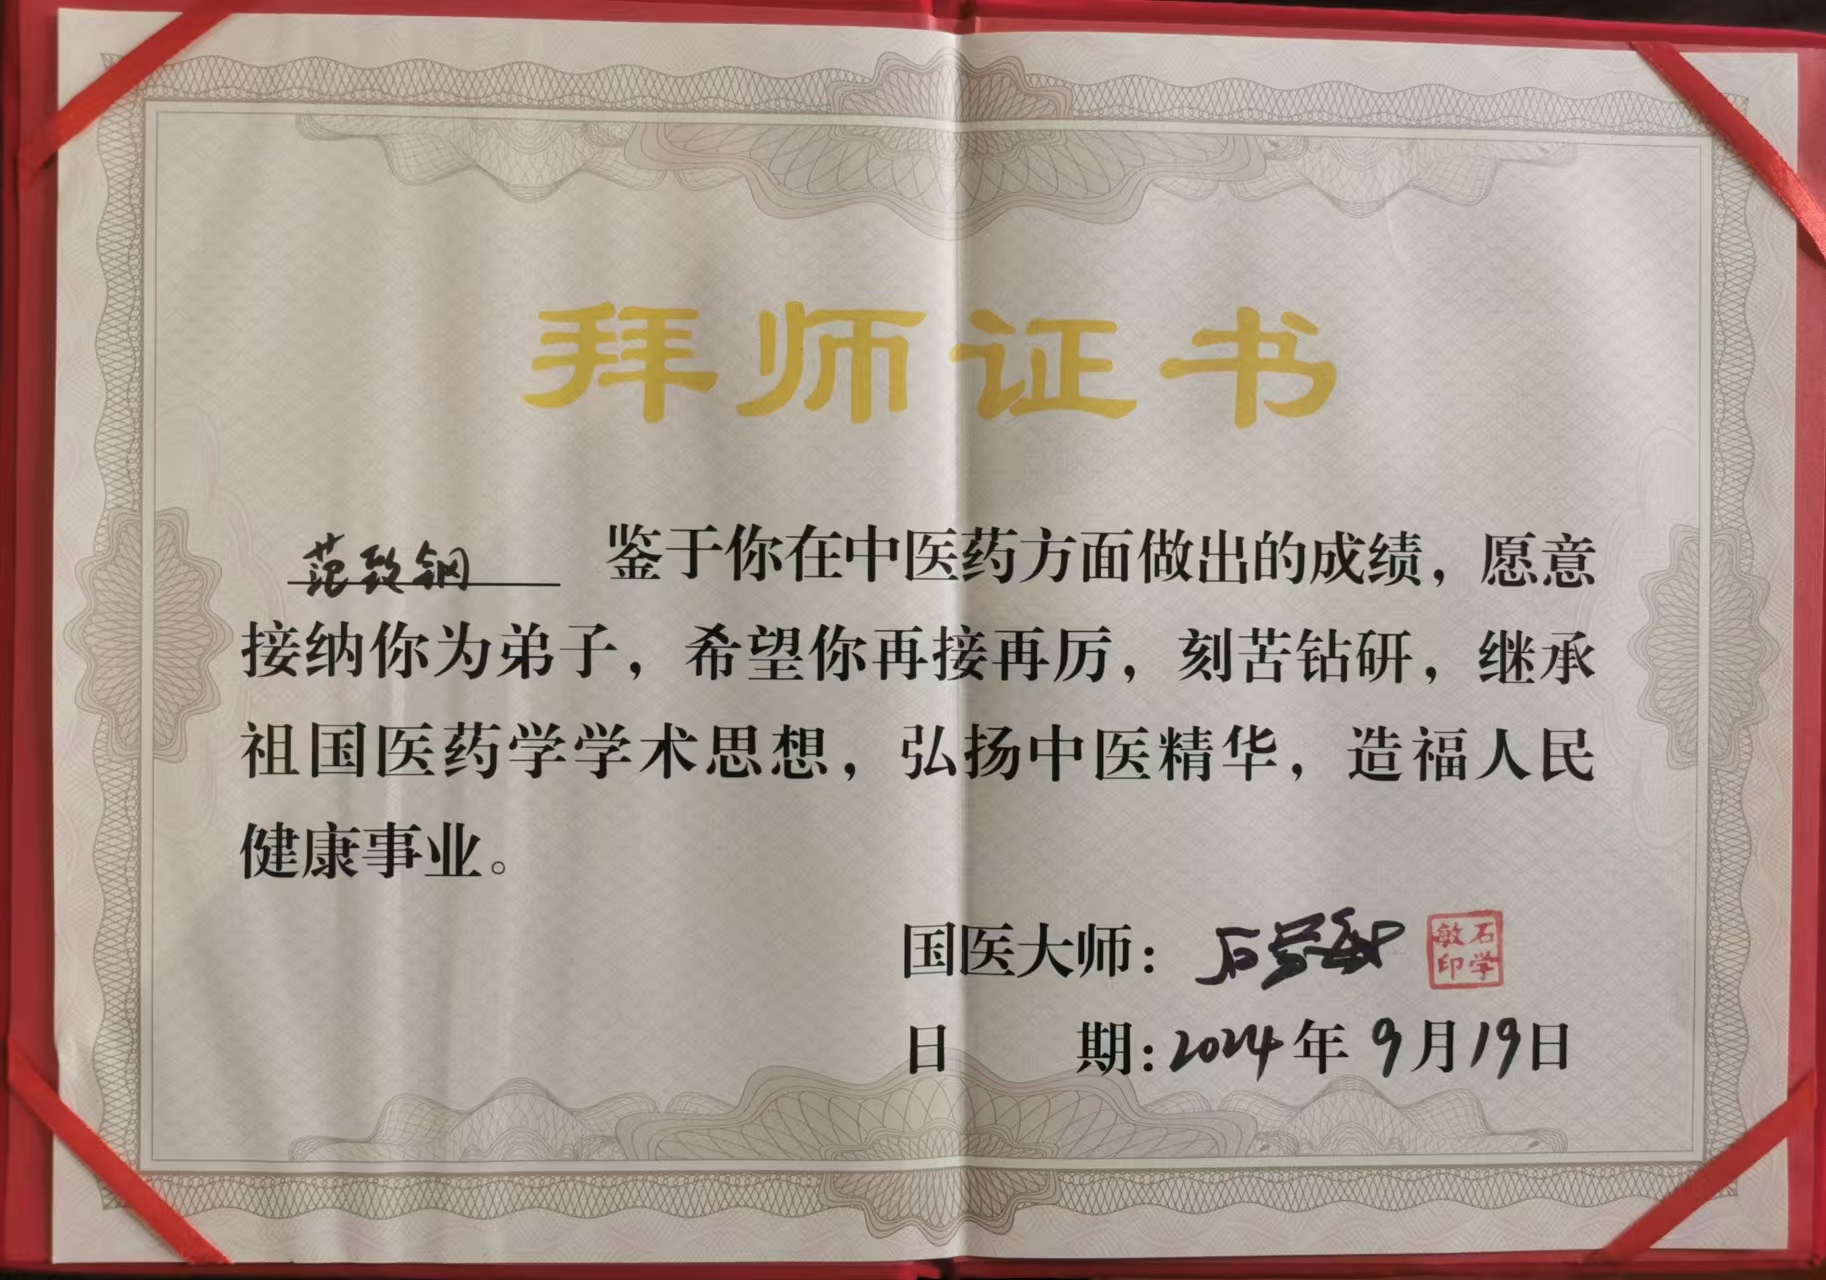 拜师证书
范致钢 鉴于你在中医药方面做出的成绩，愿意
接纳你为弟子，希望你再接再厉，刻苦钻研，继承
祖国医药学学术思想，弘扬中医精华，造福人民
健康事业。
国医大师：石学敏 石学敏印
日 期:2024年9月19日